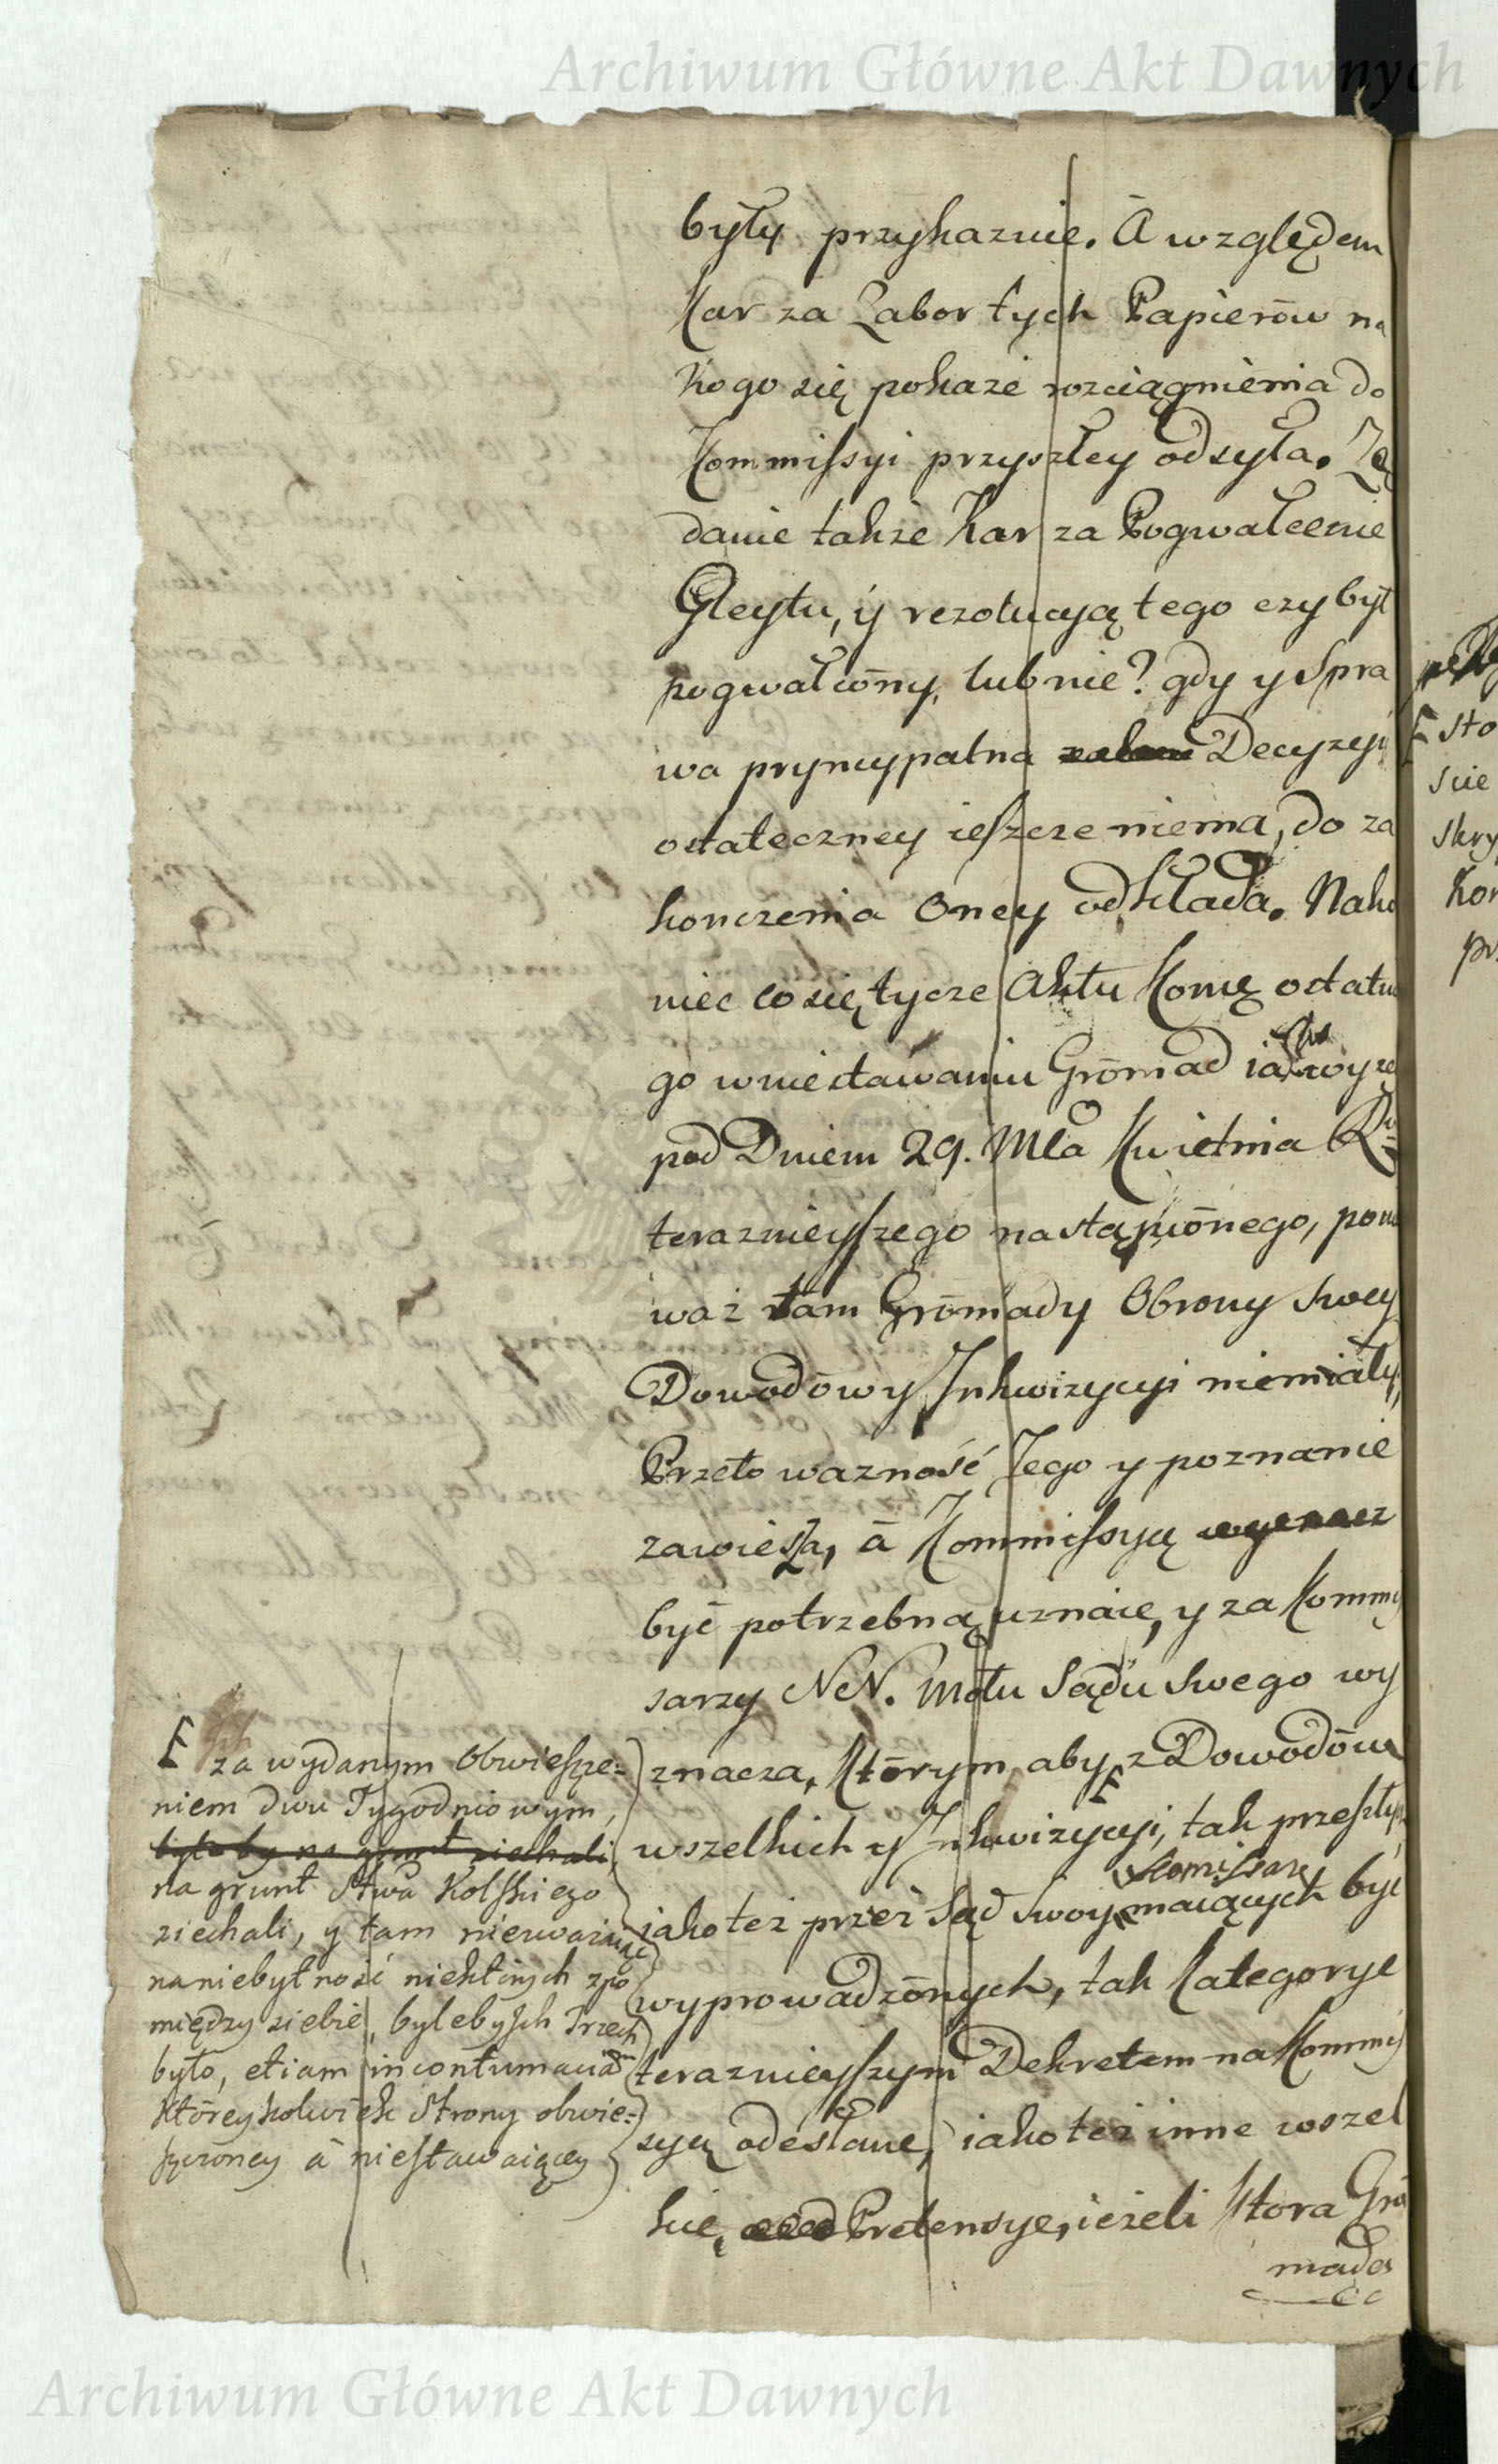 Archiwum Główne Akt Dawnych
były przykaznie. A względem
Kar za Zabor tych Papierów na
Kogo się pokaże rozciągnienia do
Kommissyi przyszłey odsyła. Żą
danie także Kar za Pogwałcenie
Gleytu, y rezolucyą tego czy był
pogwałcony, lub nie? gdy y Spra
wa pryncypalna Decyzyi
ostateczney ieszcze niema, do za
konczenia Oney odkłada. Nako
niec co się tycze Aktu Komę ostatn
go w niestáwaniu Gromad iako wyżey
pod Dniem 29. Mca Kwietnia Rku
teraznieyszego nastąpionego, ponie
waż tam Gromady Obrony swey
Dowodów y Inkwizycyi niemiały,
Przeto ważność Jego y poznanie
zawiesza, á Kommissyą
być potrzebną uznaie, y za Kommis
sarzy NN. Mótu Sądu swego wy
znacza, Którym aby z Dowodów
wszelkich y Inkwizycyi, tak przeszłych
Komissarz
iako też przez Sąd swoy maiących być
wyprowadzonych, tak Kategorye
teraznieyszym Dekretem na Kommis
syą odesłane, iako też inne wszel
kie, Pretensye, ieżeli Ktora Gro
mada
za wydanym Obwieszcze=
niem dwu Tygodniowym,
było by na grunt ziechali
na grunt Stwa Kolskiego
ziechali, y tam nieuważaiąc
na niebytność niektórych zpo
między siebie, byleby Ich Trzech
było, etiam in contumaciam
Któreykolwiek Strony obwie=
szczoney á niestawaiącey
sto
scie
skry
Kor
prz
Archiwum Główne Akt Dawnych